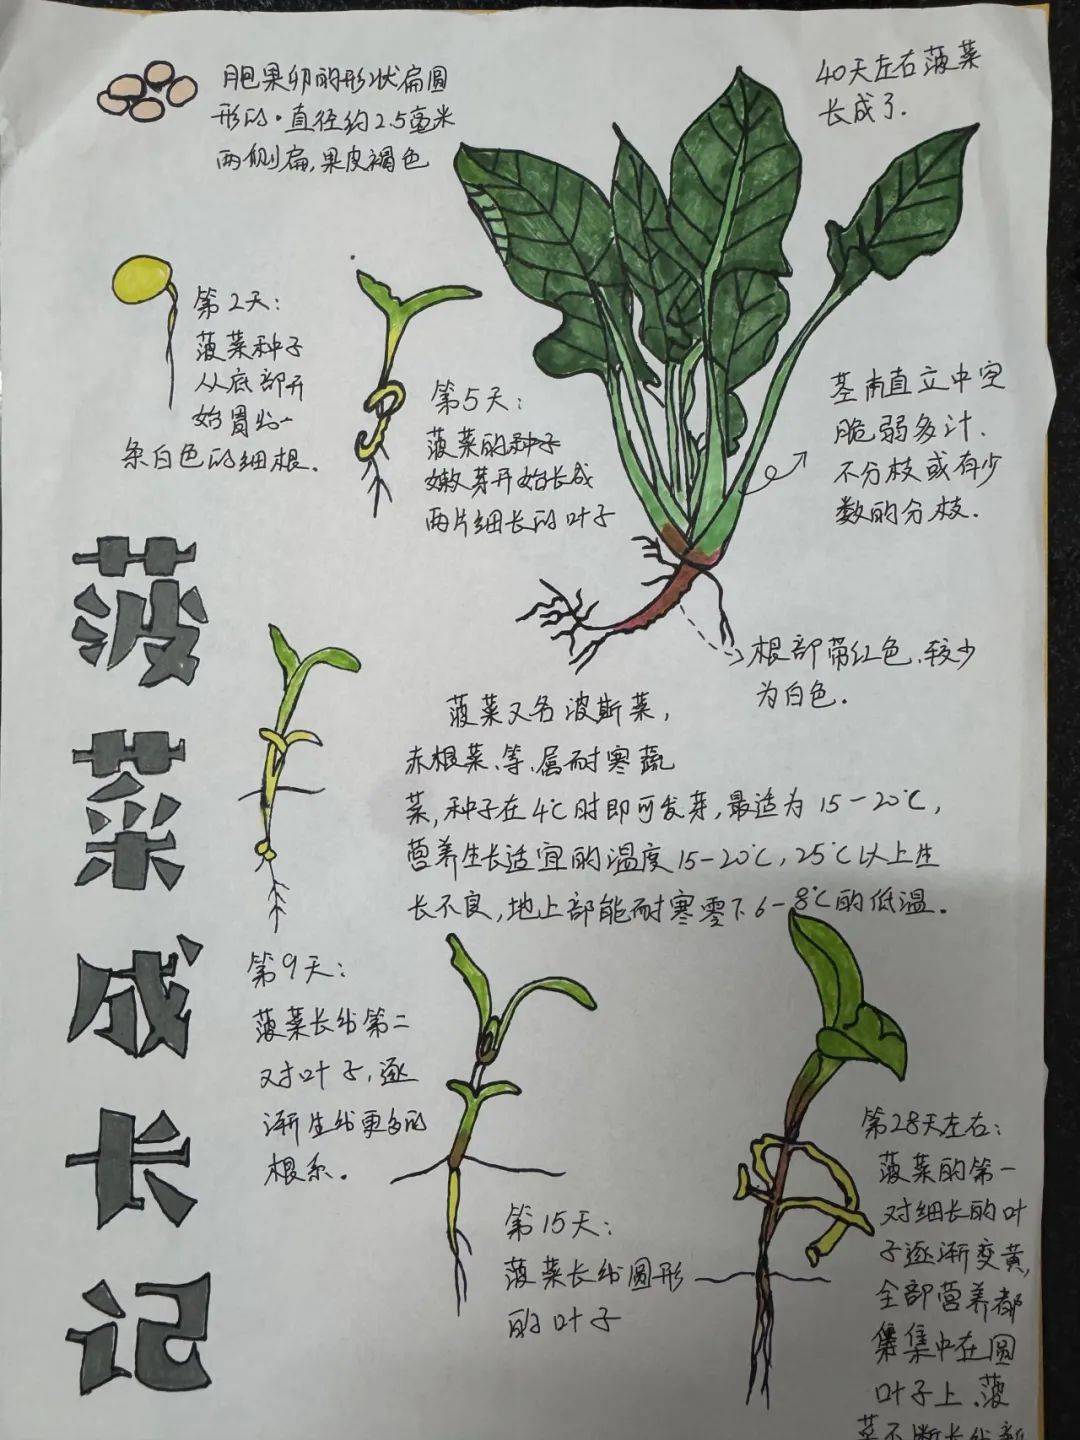 胞果卵的形状扁圆
形的.直径约2.5毫米
两侧扁,果皮褐色
40天左右菠菜
长成了.
第2天:
菠菜种子
从底部开
始冒出一
条白色的细根.
第5天:
菠菜的种子
嫩芽开始长成
两片细长的叶子
茎直立中空
脆弱多汁.
不分枝或有少
数的分枝.
根部带红色.较少
为白色.
菠菜成长记
菠菜又名波斯菜,
赤根菜、等、属耐寒蔬
菜,种子在4℃时即可发芽,最适为15-20℃,
营养生长适宜的温度15-20℃,25℃以上生
长不良,地上部能耐寒零下6-8℃的低温.
第9天:
菠菜长出第二
对叶子,逐
渐生出更多的
根系.
第15天:
菠菜长出圆形
的叶子
第28天左右:
菠菜的第一
对细长的叶
子逐渐变黄,
全部营养都
集集中在圆
叶子上.菠
菜不断长出新